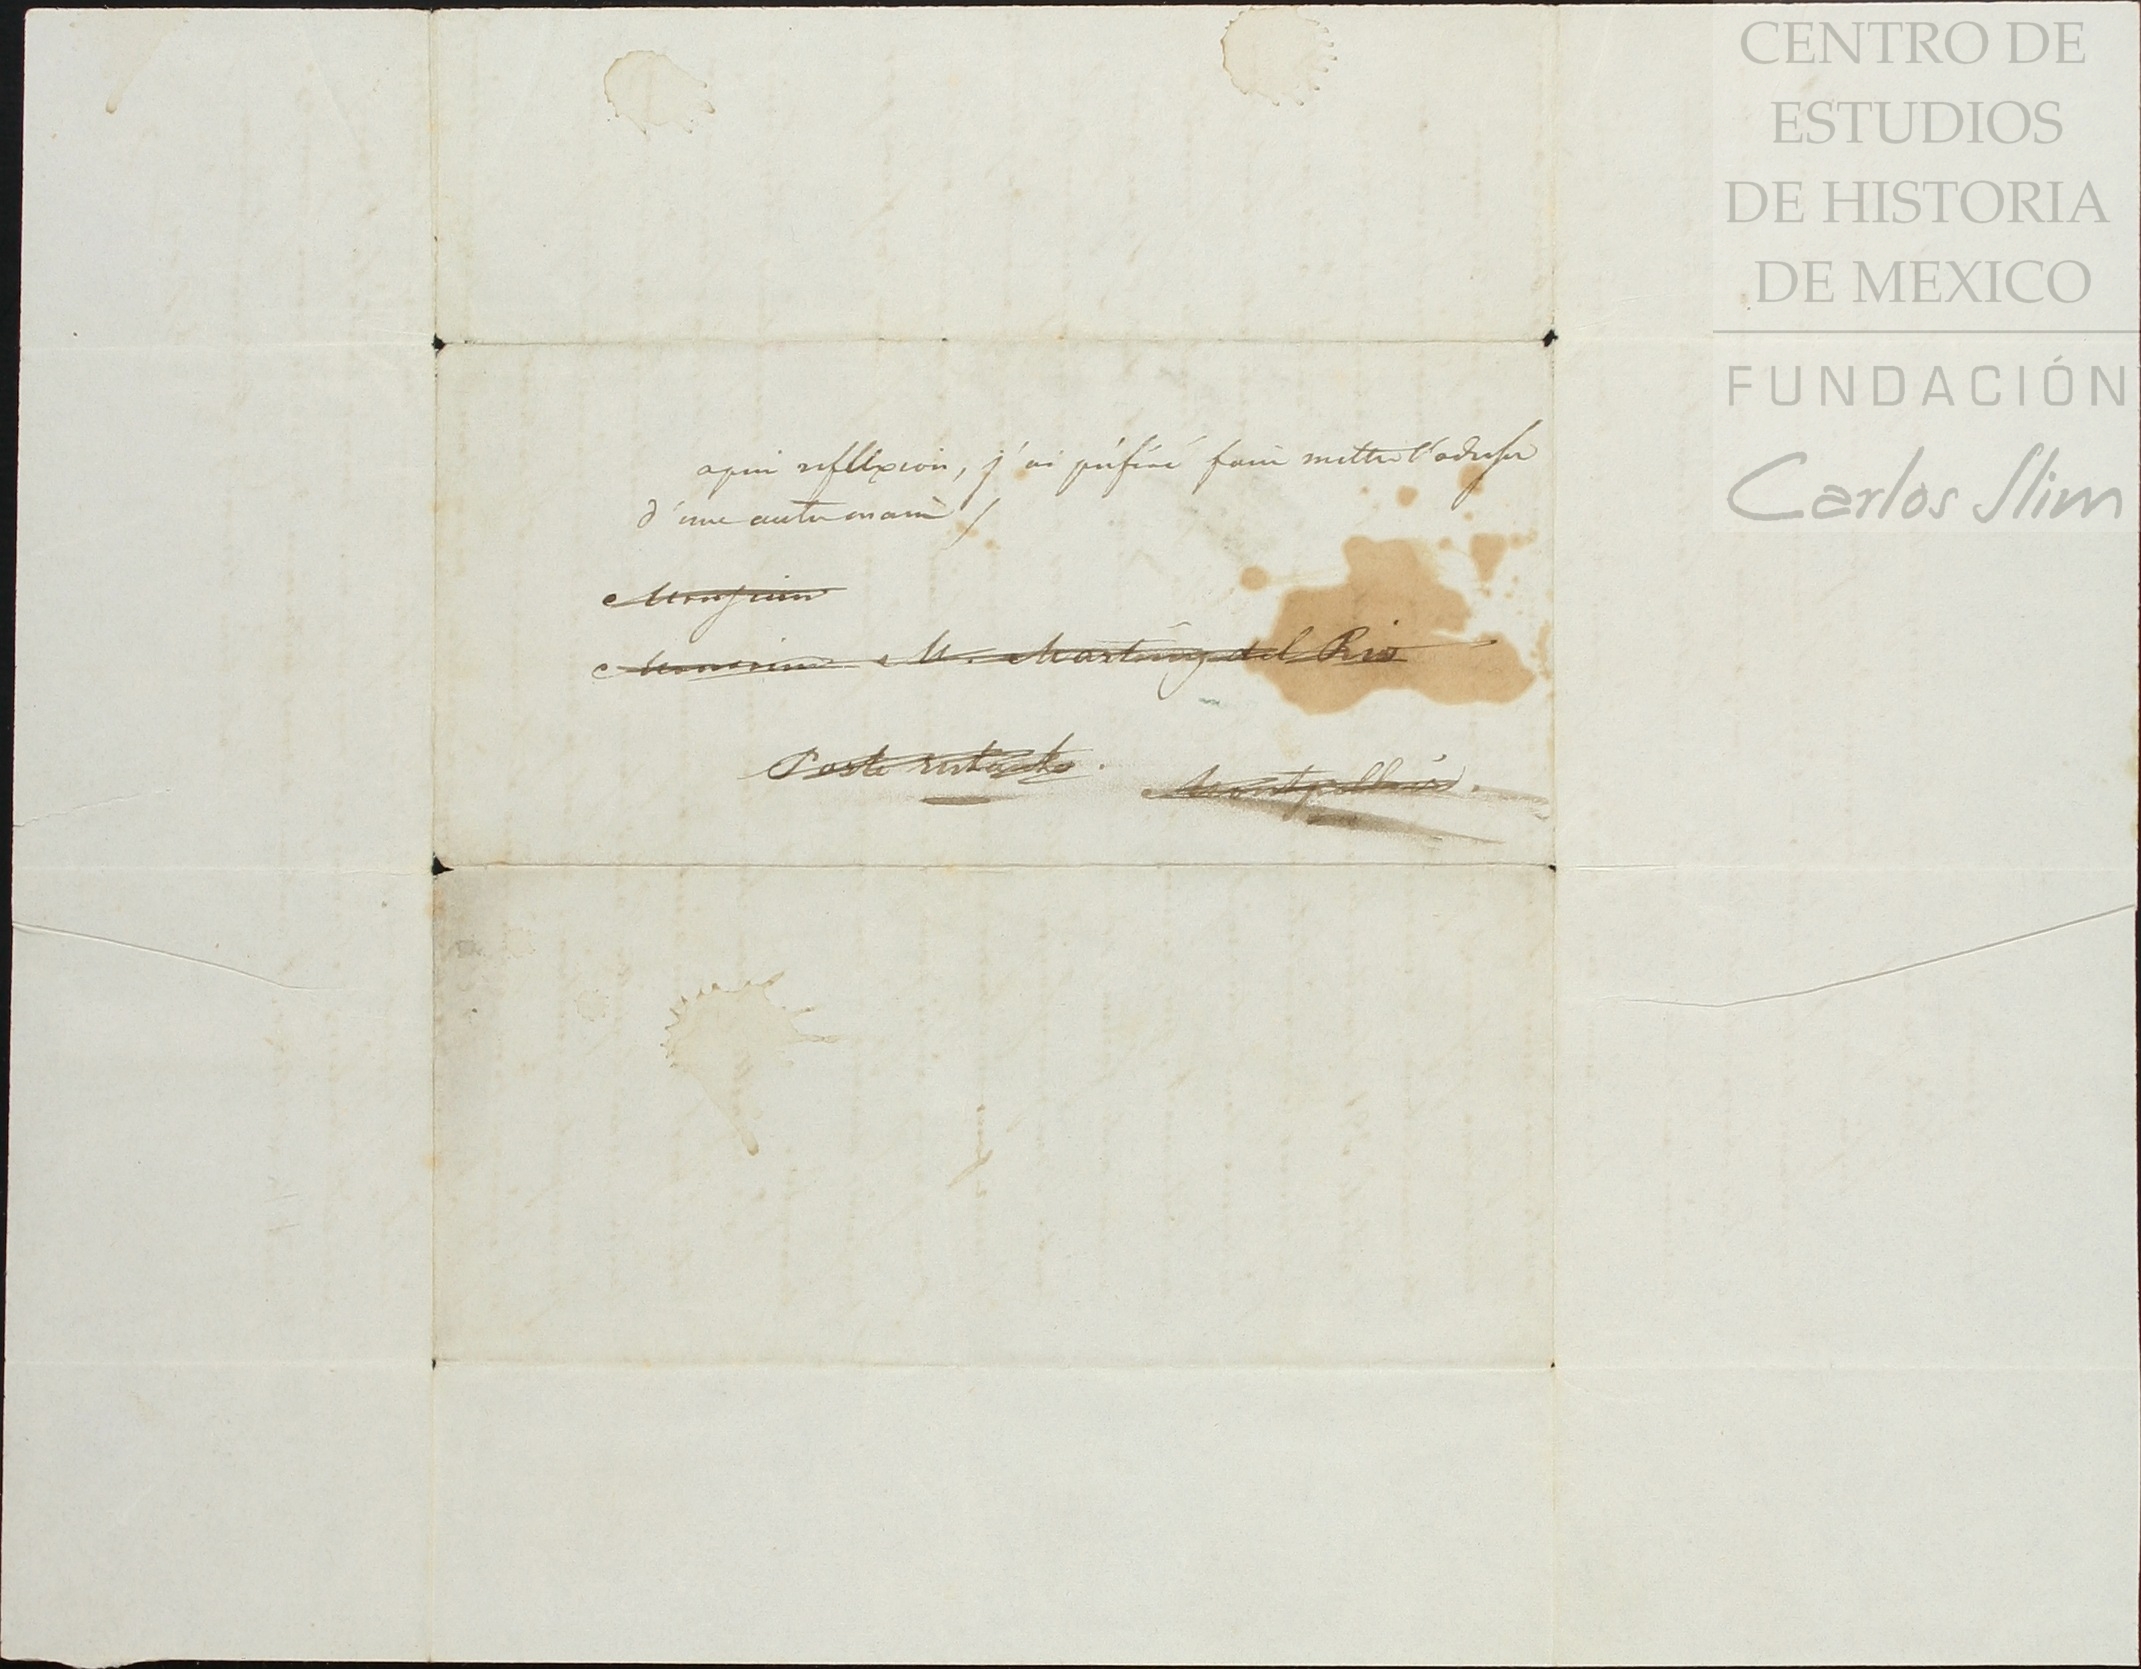 CENTRO DE
ESTUDIOS
DE HISTORIA
DE MEXICO
FUNDACIÓN
Carlos Slim
apres reflexion, j'ai préféré faire mettre l'adresse
d'une autre main /
Monsieur
Monsieur M. Martinez del Rio
Poste restante.
Montpellier.